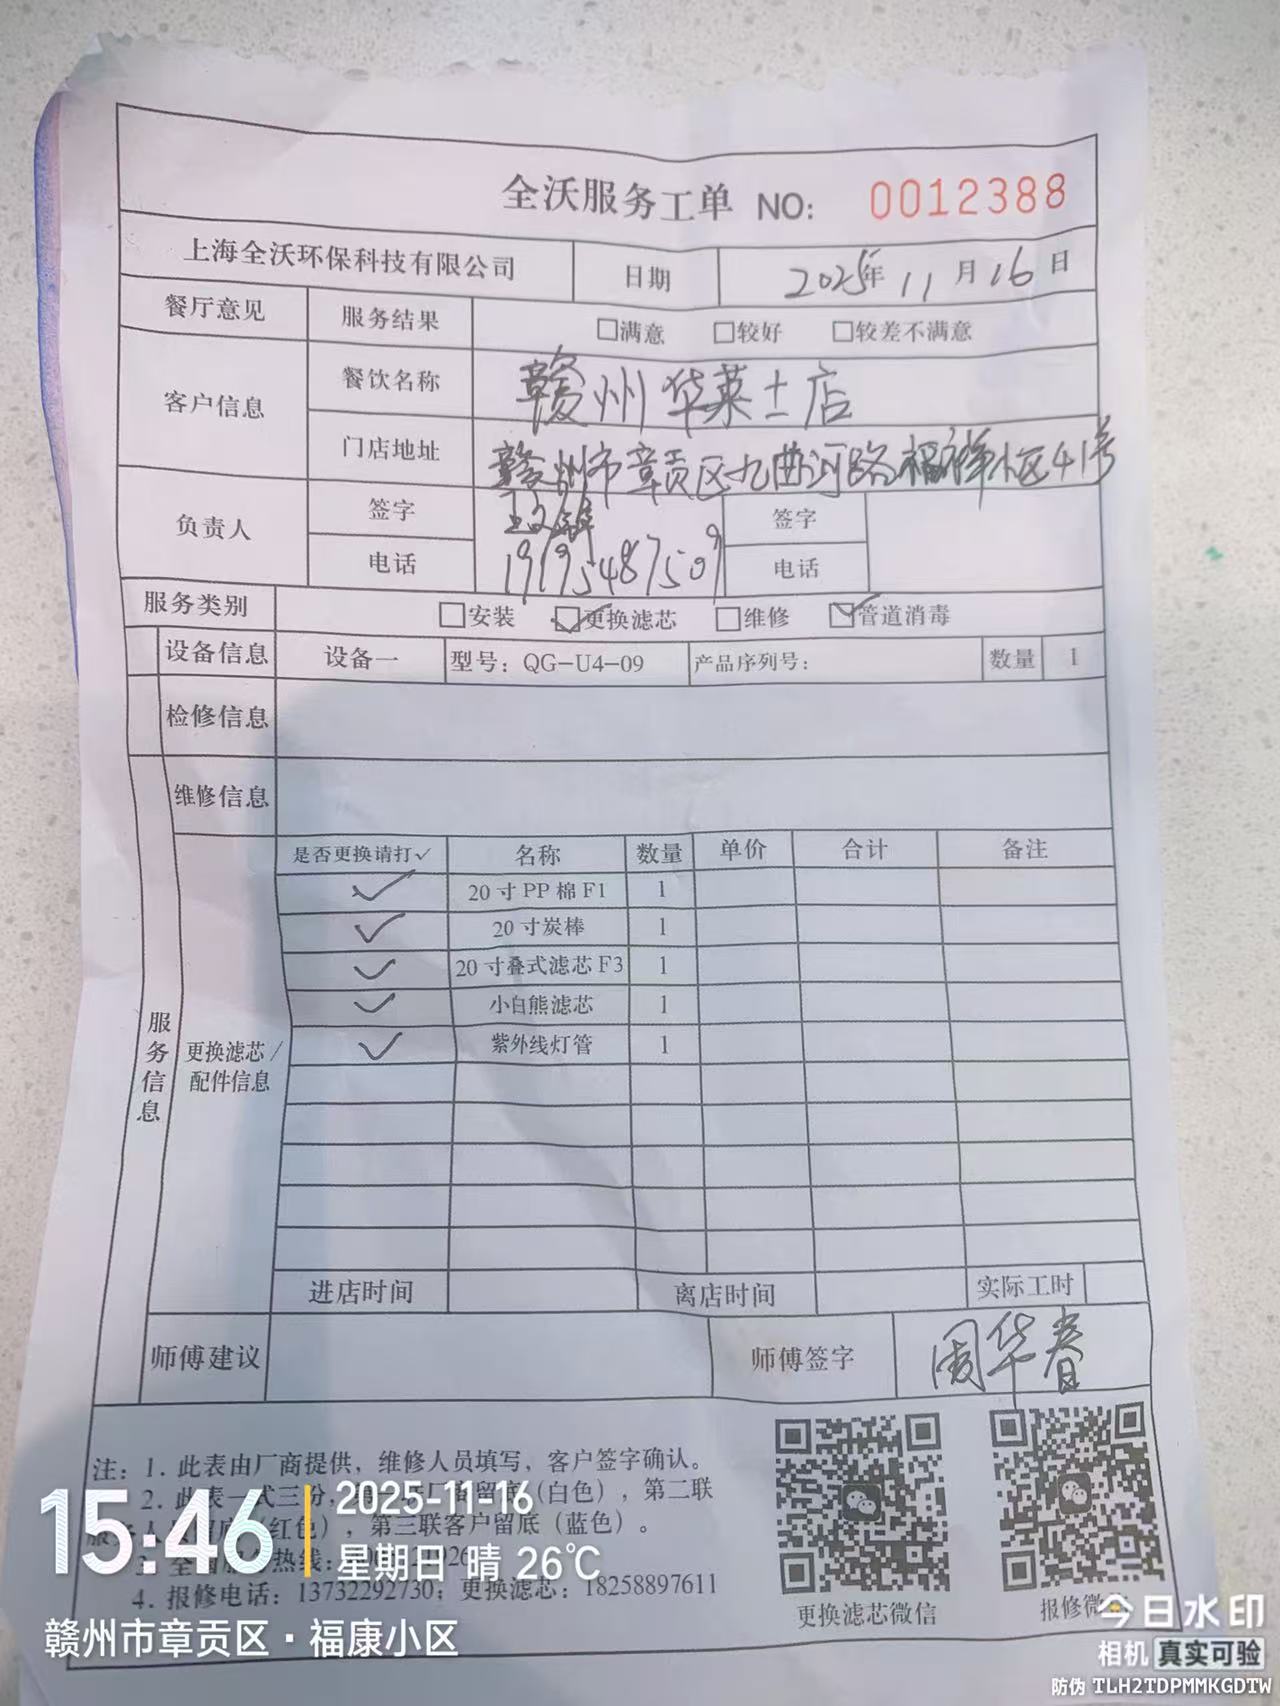 全沃服务工单 NO: 0012388
上海全沃环保科技有限公司 日期 2025年 11月 16日
餐厅意见 服务结果 □满意 □较好 □较差不满意
客户信息 餐饮名称 赣州华莱士店
门店地址 赣州市章贡区九曲河路福祥小区41号
负责人 签字 签字
电话 19195487509 电话
服务类别 □安装 ☑更换滤芯 □维修 ☑管道消毒
设备信息 设备一 型号: QG-U4-09 产品序列号: 数量 1
检修信息
维修信息
服务信息
更换滤芯/
配件信息
是否更换请打✓ 名称 数量 单价 合计 备注
✓ 20寸PP棉F1 1
✓ 20寸炭棒 1
✓ 20寸叠式滤芯F3 1
✓ 小白熊滤芯 1
✓ 紫外线灯管 1
进店时间 离店时间 实际工时
师傅建议 师傅签字 周华春
注: 1. 此表由厂商提供，维修人员填写，客户签字确认。
2. 此表一式三份，厂商留底（白色），第二联
（红色），第三联客户留底（蓝色）。
3. 全国服务热线:
4. 报修电话: 13732292730; 更换滤芯: 18258897611
更换滤芯微信 报修微
15:46
2025-11-16
星期日 晴 26℃
赣州市章贡区·福康小区
今日水印
相机 真实可验
防伪 TLH2TDPMMKGDTW